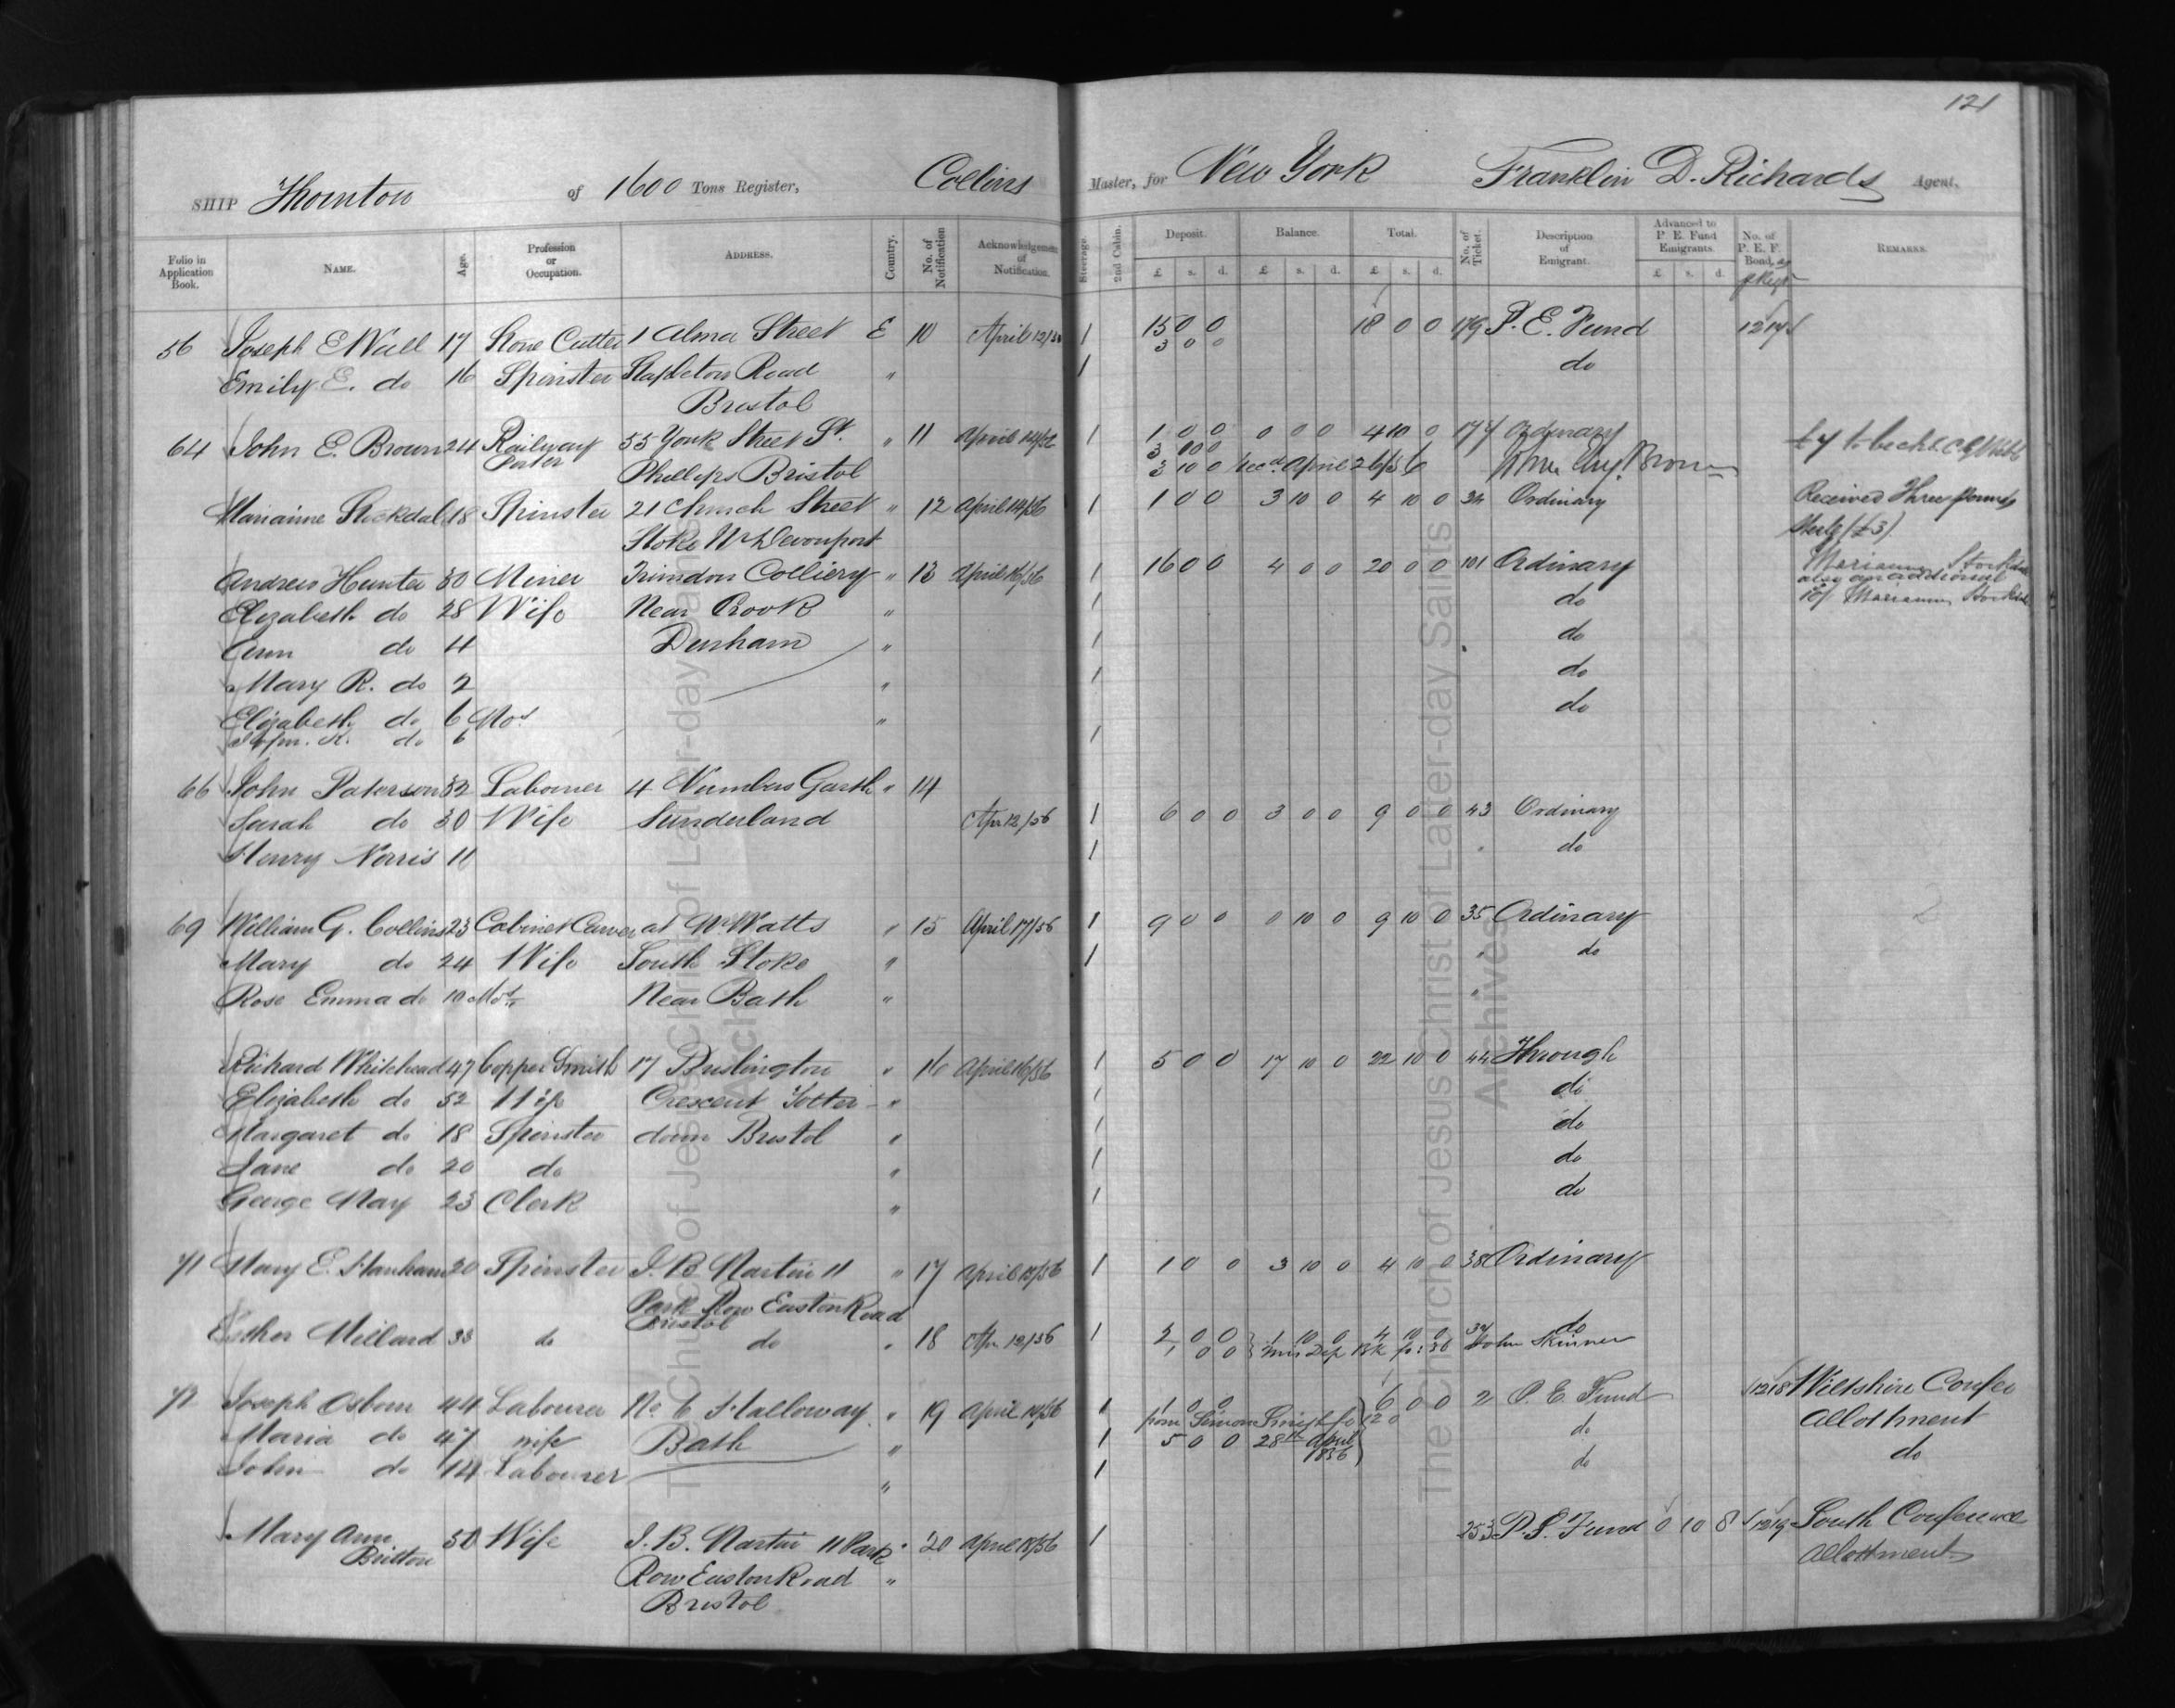 121
SHIP Thornton of 1600 Tons Register, Collins Master, for New York Franklin D. Richards Agent.
Folio in Application Book. NAME. Age. Profession or Occupation. ADDRESS. Country. No. of Notification Acknowledgement of Notification. Steerage. 2nd Cabin. Deposit. £ s. d. Balance. £ s. d. Total. £ s. d. No. of Ticket. Description of Emigrant. Advanced to P. E. Fund Emigrants. £ s. d. No. of P. E. F. Bond, REMARKS.
56 Joseph E Wall 17 Stone Cutter 1 Alma Street E 10 April 12/56 1 15 0 0 18 0 0 179 P. E. Fund 1217
3 0 0
Emily E. do 16 Spinster Stapleton Road " 1 do
Bristol
64 John E. Brown 24 Railway 55 York Street St. " 11 April 14/56 1 1 0 0 0 0 0 4 10 0 174 Ordinary
Porter Phillips Bristol 3 10 0 Recd April 26/56 Brown
Marianne Stockdale 18 Spinster 21 Church Street " 12 April 14/56 1 1 0 0 3 10 0 4 10 0 34 Ordinary Received Three pounds
Stoke Nr Devonport (£3)
Andrew Hunter 30 Miner Trimdon Colliery " 13 April 16/56 1 16 0 0 4 0 0 20 0 0 101 Ordinary Marianne
also an additional
Elizabeth do 28 Wife Near Crook " 1 do 10/ Marianne
Ann do 4 Durham " 1 do
Mary R. do 2 " 1 do
Elizabeth do 6 Mos " do
do 6 1
66 John Paterson 32 Labourer 4 Numbers Garth " 14
Sarah do 30 Wife Sunderland Apr 12/56 1 6 0 0 3 0 0 9 0 0 43 Ordinary
Henry Norris 11 1 do
69 William G. Collins 23 Cabinet Carver at Mr Watts " 15 April 17/56 1 9 0 0 0 10 0 9 10 0 35 Ordinary
Mary do 24 Wife South Stoke " 1 do
Rose Emma do 10 Mos Near Bath " "
Richard Whitehead 47 Copper Smith 17 Brislington " 16 April 16/56 1 5 0 0 17 10 0 22 10 0 44 Through
Elizabeth do 52 Wife Crescent Totter- " 1 do
Margaret do 18 Spinster down Bristol " 1 do
Jane do 20 do " 1 do
George May 23 Clerk " 1 do
71 Mary E. Hanham 20 Spinster J. B. Martin 11 " 17 April 18/56 1 1 0 0 3 10 0 4 10 0 38 Ordinary
Park Row Easton Road
Bristol
Esther Millard 33 do do " 18 Apr 12/56 1 2 0 0 1 10 0 4 10 0 34 do
1 0 0 John Skinner
72 Joseph Osborn 44 Labourer No. 6 Holloway " 19 April 14/56 1 1 0 0 6 0 0 2 P. E. Fund 1218 Wiltshire Confer
from Simon Smith 12 0 Allotment
Maria do 47 wife Bath " 1 5 0 0 28th April do
1856 do
John do 14 Labourer " 1 do
Mary Ann 50 Wife J. B. Martin 11 Park " 20 April 18/56 1 253 P. E. Fund 0 10 8 1219 South Conference
Britton Allottment
Row Easton Road "
Bristol
The Church of Jesus Christ of Latter-day Saints
Archives
The Church of Jesus Christ of Latter-day Saints
Archives